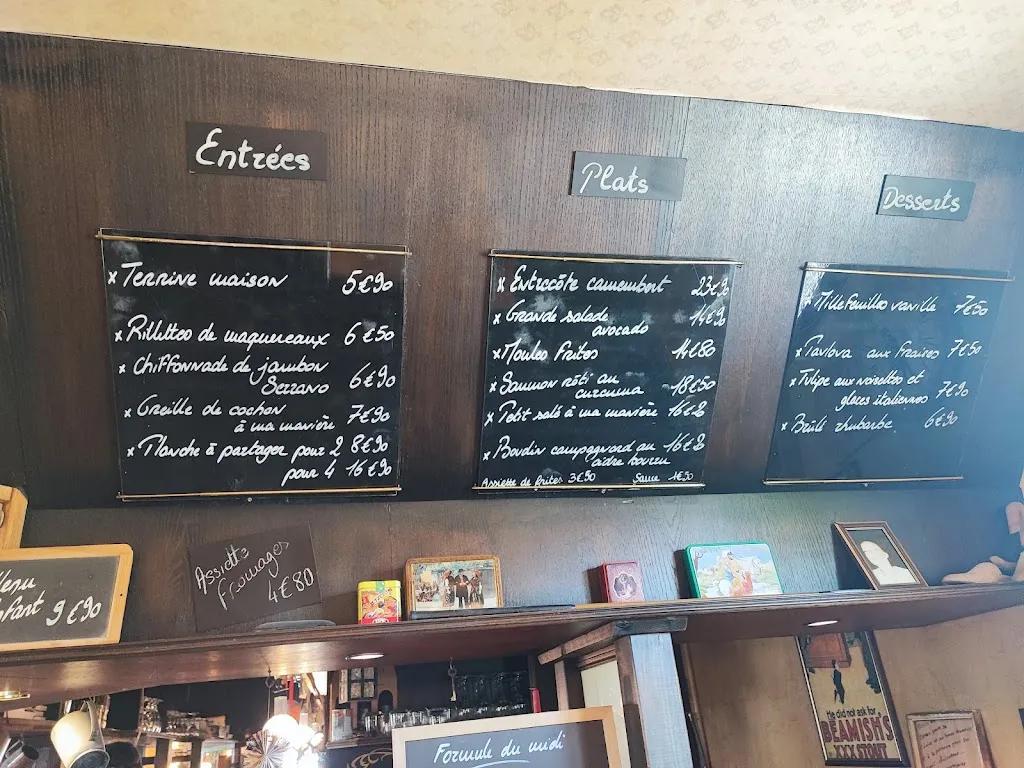 Entrées
x Terrine maison 5€90
x Rillettes de maquereaux 6€50
x Chiffonnade de jambon
Serrano 6€90
x Oreille de cochon
à ma manière 7€90
x Planche à partager pour 2 8€90
pour 4 16€90
Plats
x Entrecôte camembert 23€90
x Grande salade
avocado 14€90
x Moules frites 14€80
x Saumon rôti au
curcuma 18€50
x Petit salé à ma manière
x Boudin campagnard au
cidre bourru
Assiette de frites 3€50 Sauce 1€50
Desserts
x Millefeuilles vanille 7€50
x Pavlova aux fraises 7€50
x Tulipe aux noisettes et
glaces italiennes 7€90
x Brûlé rhubarbe 6€90
Menu
enfant 9€90
Assiette
fromages
4€80
Formule du midi
He did not ask for
BEAMISH'S
XXX STOUT